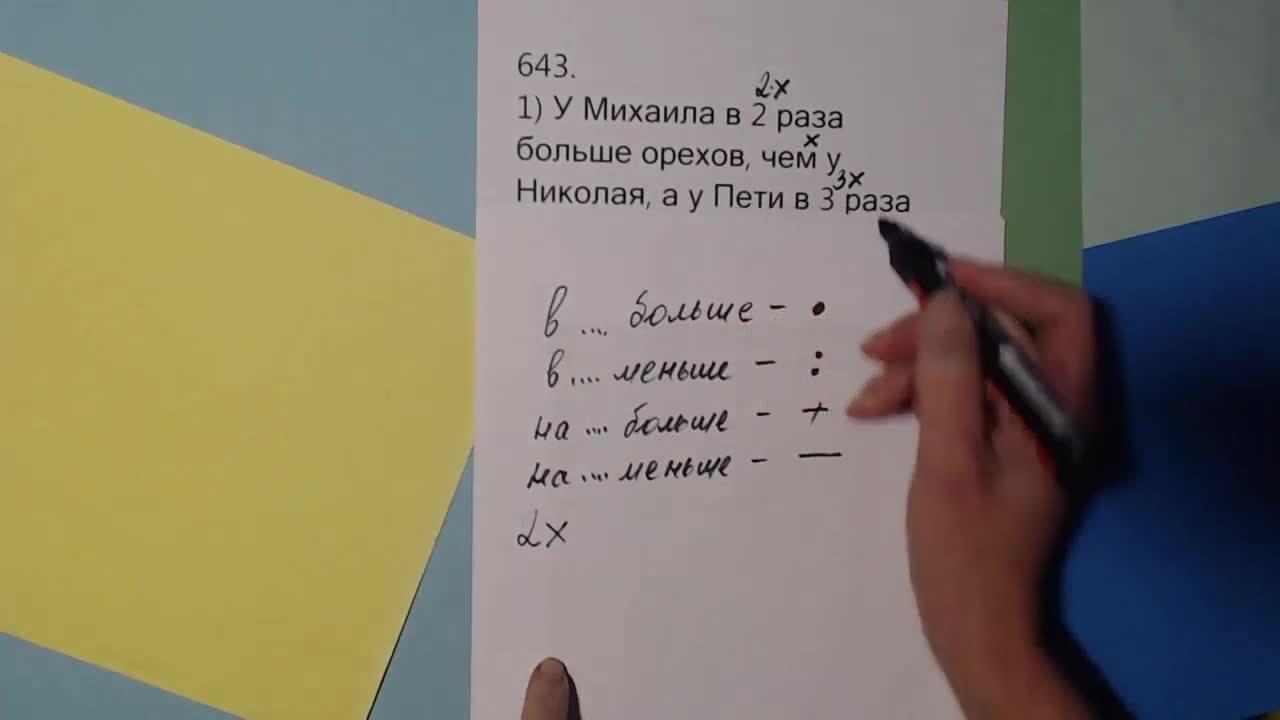 643.
2·x
1) У Михаила в 2 раза
x
больше орехов, чем у
3x
Николая, а у Пети в 3 раза
в .... больше - •
в .... меньше - :
на .... больше - +
на .... меньше - —
2x